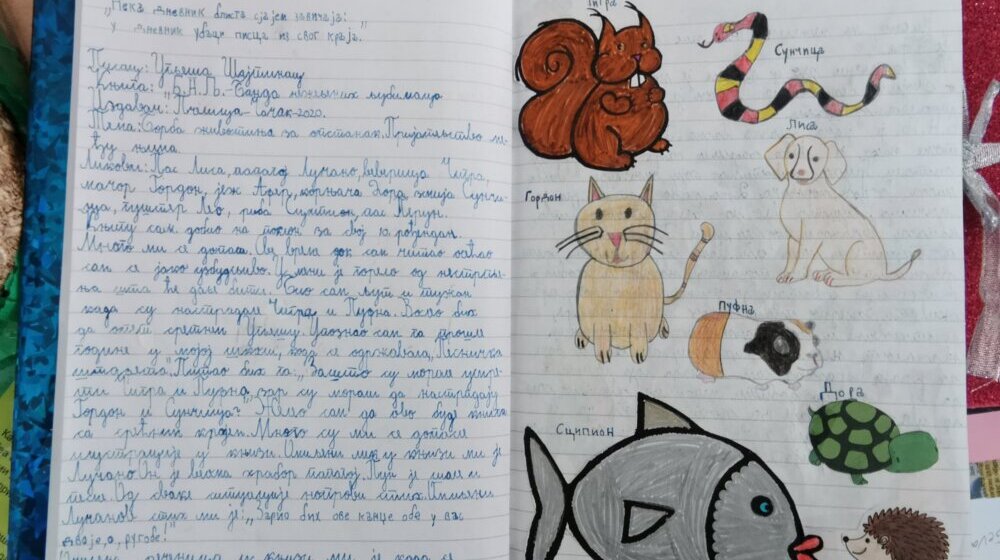 „Нека дневник блиста сјајем завичаја:
У дневник убаци писца из свог краја.
Писац: Урош
Књига: Б.Н.Љ.-Банда нежељених љубимаца
Издавач: Пчелица-Чачак-2020.
Тема: Борба животиња за опстанак. Пријатељство ме-
ђу њима.
Ликови: Пас Лиса, папагај Лучано, веверица Чигра,
мачор Гордон, јеж, корњача Дора, змија Сунчи-
ца, гуштер Лео, риба Сципион, пас
Књигу сам добио на поклон за свој 10. рођендан.
Много ми се допала. Све време док сам читао осећао
сам се јако узбудљиво. У мени је горело од нестрпље-
ња шта ће даље бити. Био сам љут и тужан
када су настрадали Чигра и Пуфна. Волео бих
да опет сретнем Упознао сам га прошле
године у мојој школи, када се одржавала „Песничка
штафета". Питао бих га: „Зашто су морали умре-
ти Чигра и Пуфна, зар су морали да настрадају
Гордон и Сунчица?" Желео сам да ово буде књига
са срећним крајем. Много су ми се допале
илустрације у књизи. Омиљени лик у књизи ми је
Лучано. Он је веома храбар папагај. Пун је шале и
песме. Од сваке ситуације направи стих. Омиљени
Лучанов стих ми је: „Зарио бих ове канџе обе у вас
двоје, о, ругобе!"
књизи ми је када се
Чигра
Сунчица
Лиса
Гордон
Пуфна
Дора
Сципион